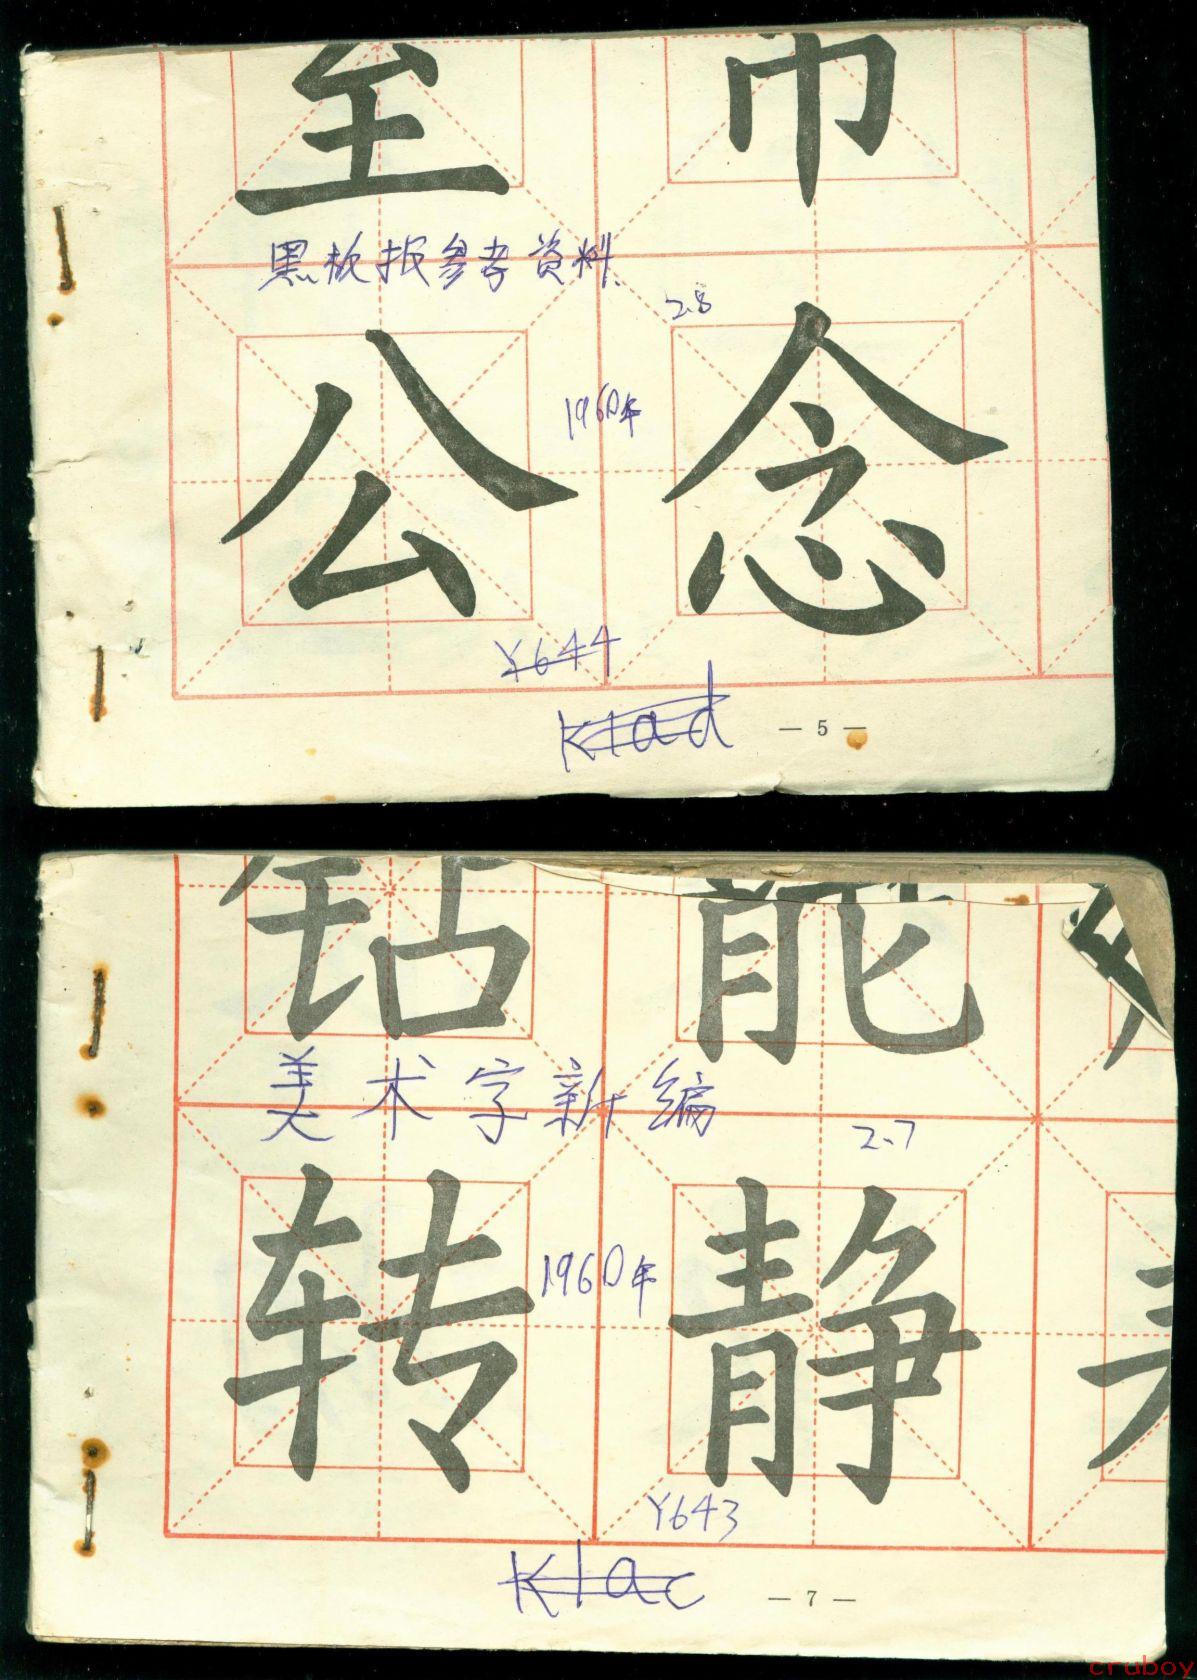 至 币
黑板报参考资料
2.8
1960年
公 念
Y644
K1ad
— 5 —
钻 能
美术字新编
2.7
1960年
转 静
Y643
K1ac
— 7 —
cruboy